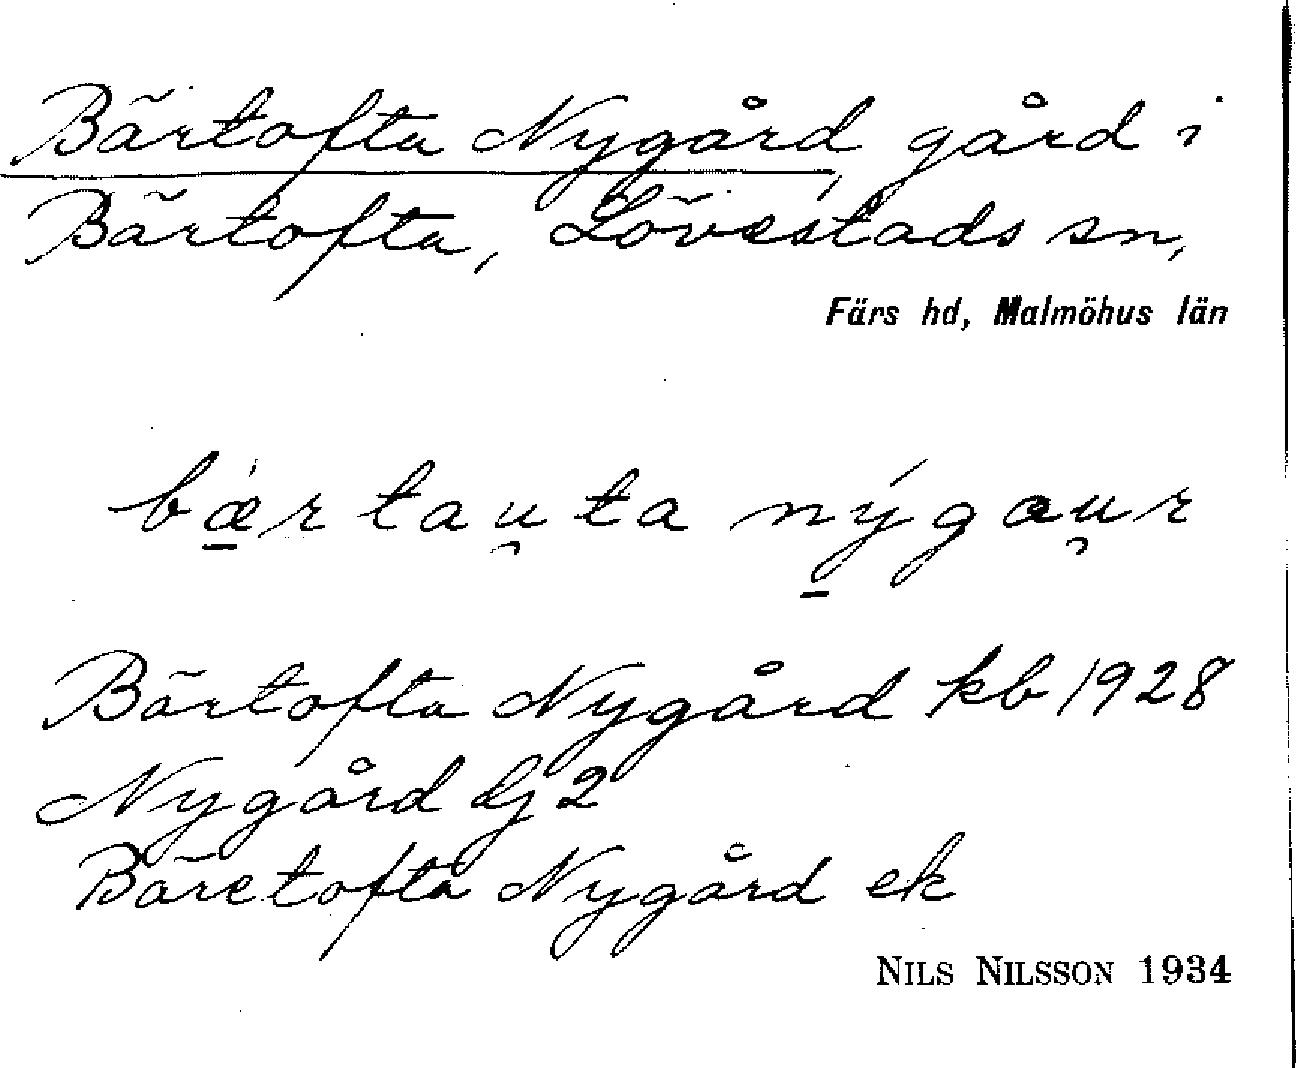 Bärtofta Nygård, gård i
Bärtofta, Lövestads sn,
Färs hd, Malmöhus län
bǽ̲r tau̯ta ný̲gau̯r
Bärtofta Nygård kb 1928
Nygård Lj 2
Bäretofta Nygård ek
NILS NILSSON 1934